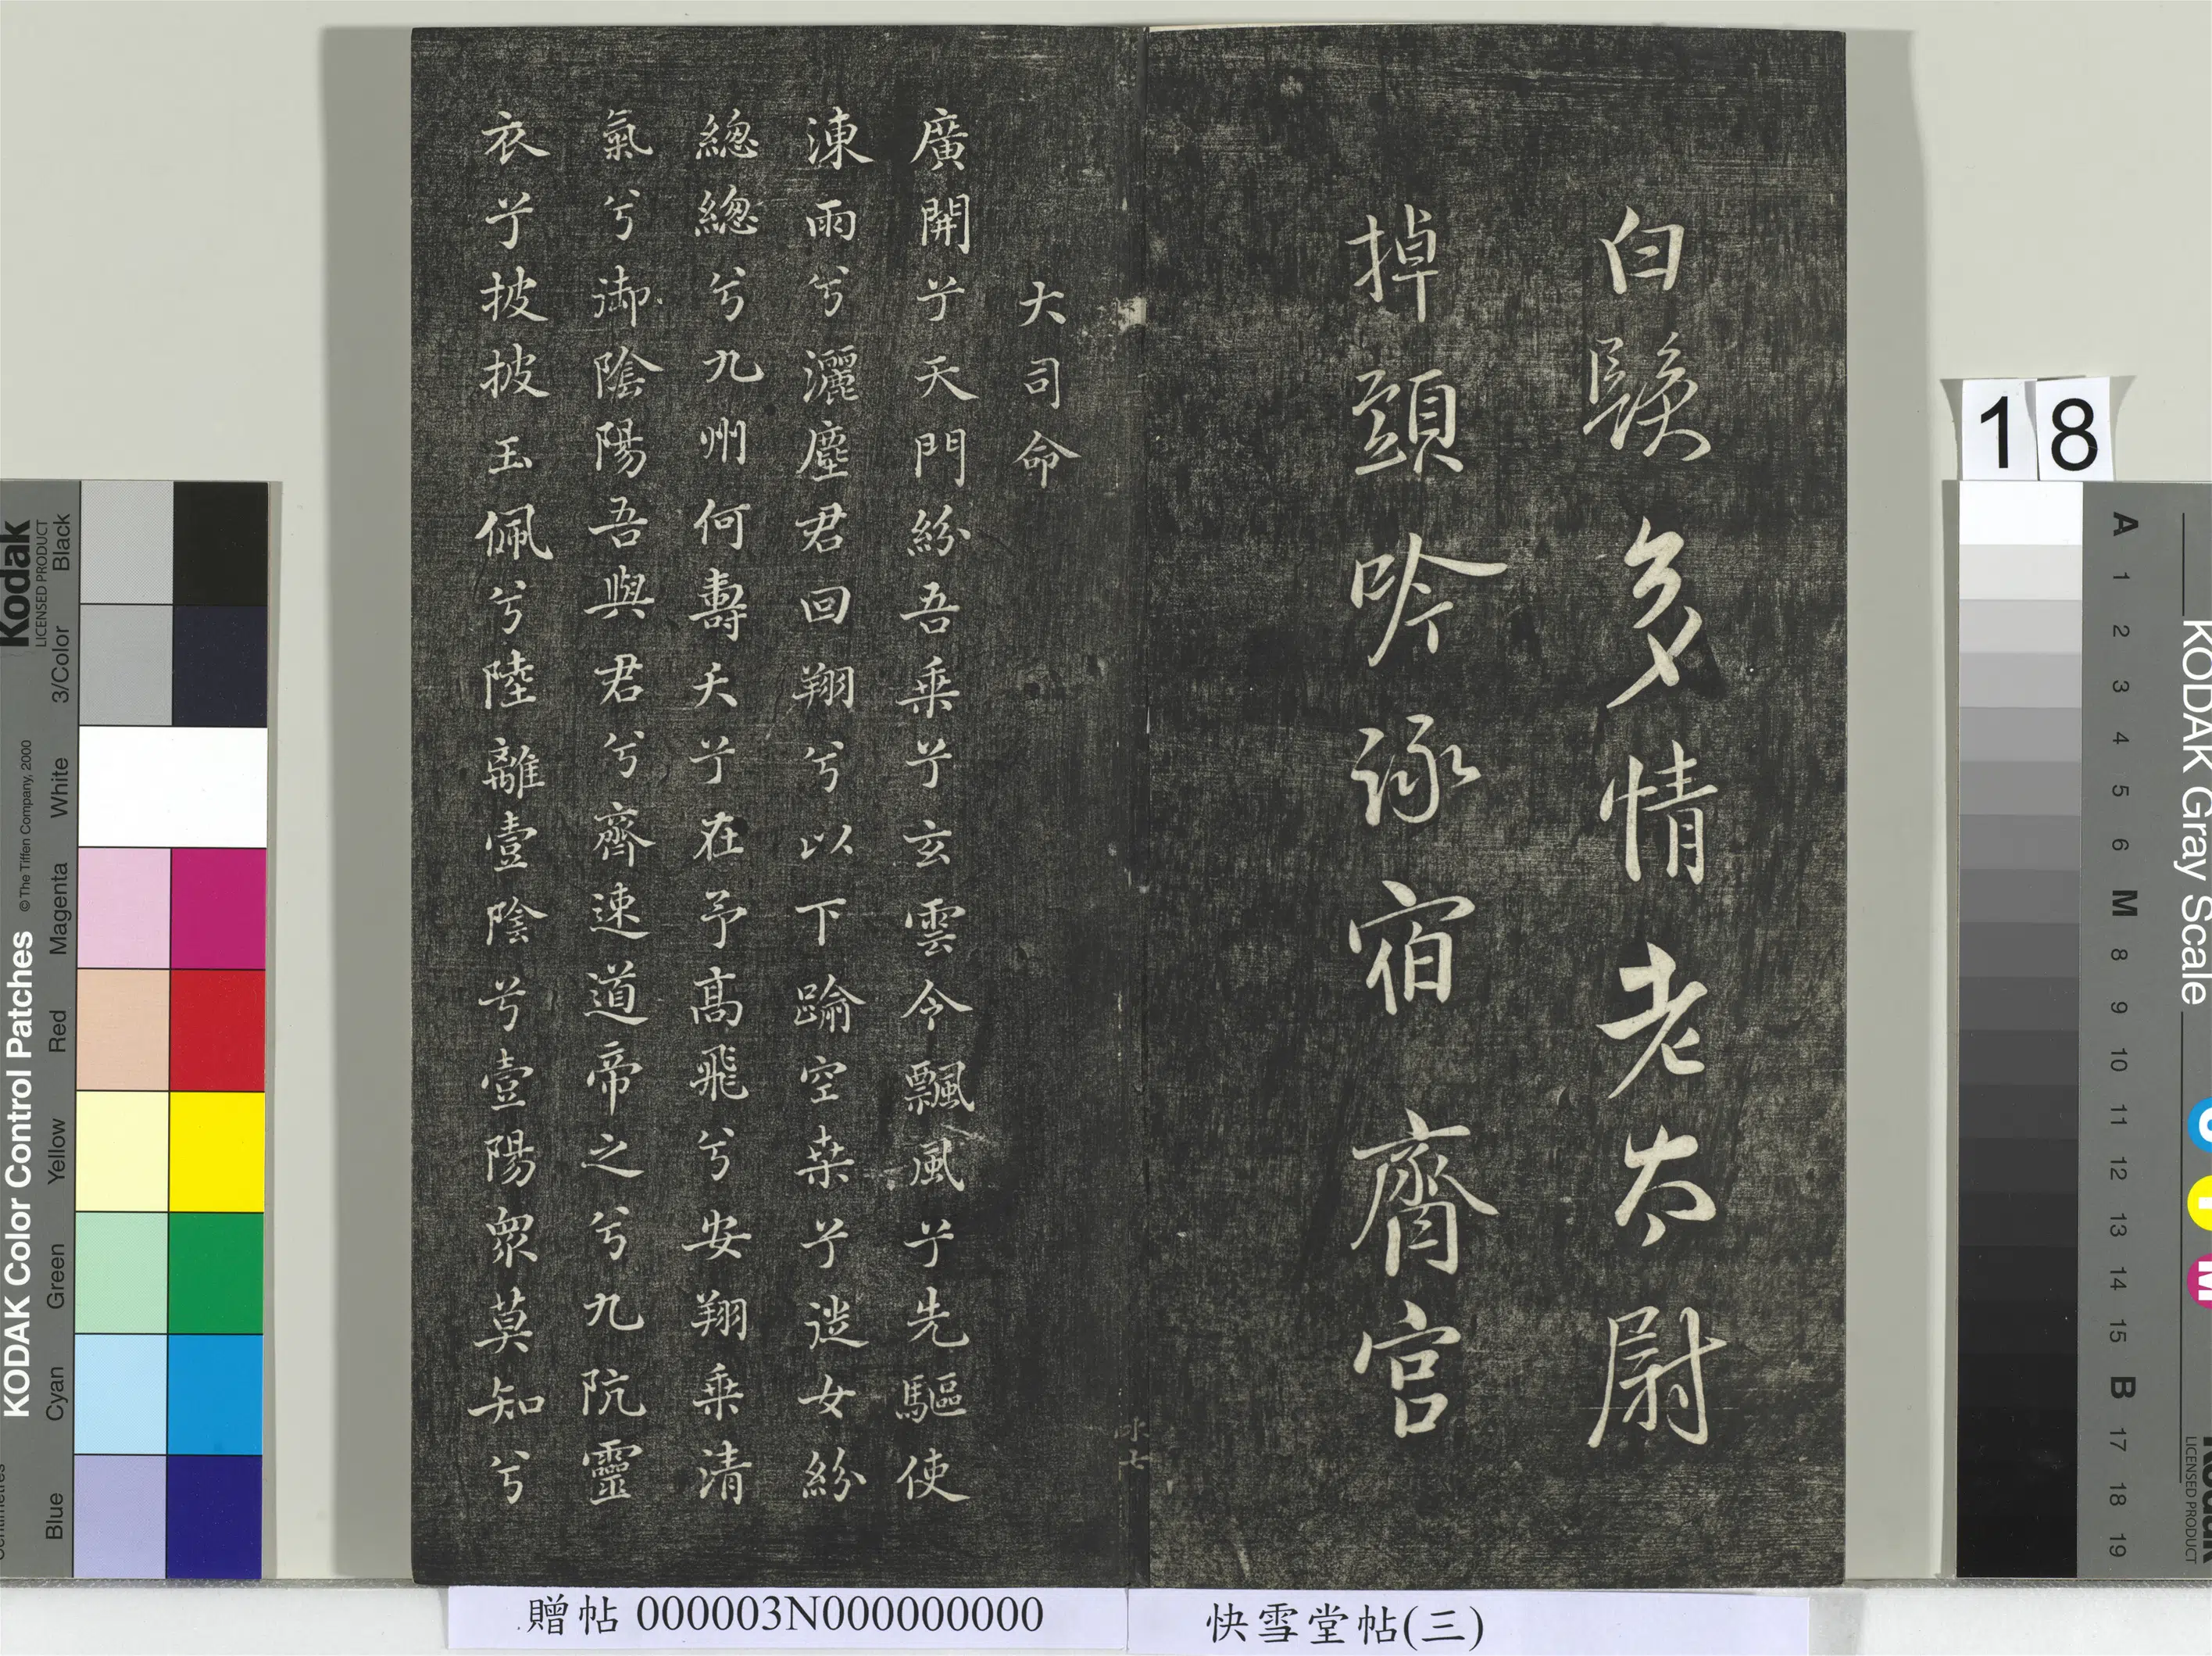 白髮多情老太尉
掉頭吟詠宿齋官
大司命
廣開兮天門紛吾乗兮玄雲令飄風兮先驅使
涷雨兮灑塵君回翔兮以下踰空桒兮從女紛
總總兮九州何壽夭兮在予高飛兮安翔乗清
氣兮御陰陽吾與君兮齊速道帝之兮九阬靈
衣兮披披玉佩兮陸離壹陰兮壹陽衆莫知兮
贈帖 000003N000000000
快雪堂帖(三)
18
KODAK Color Control Patches © The Tiffen Company, 2000
Kodak
LICENSED PRODUCT
Blue Cyan Green Yellow Red Magenta White 3/Color Black
KODAK Gray Scale
A 1 2 3 4 5 6 M 8 9 10 11 12 13 14 15 B 17 18 19
LICENSED PRODUCT